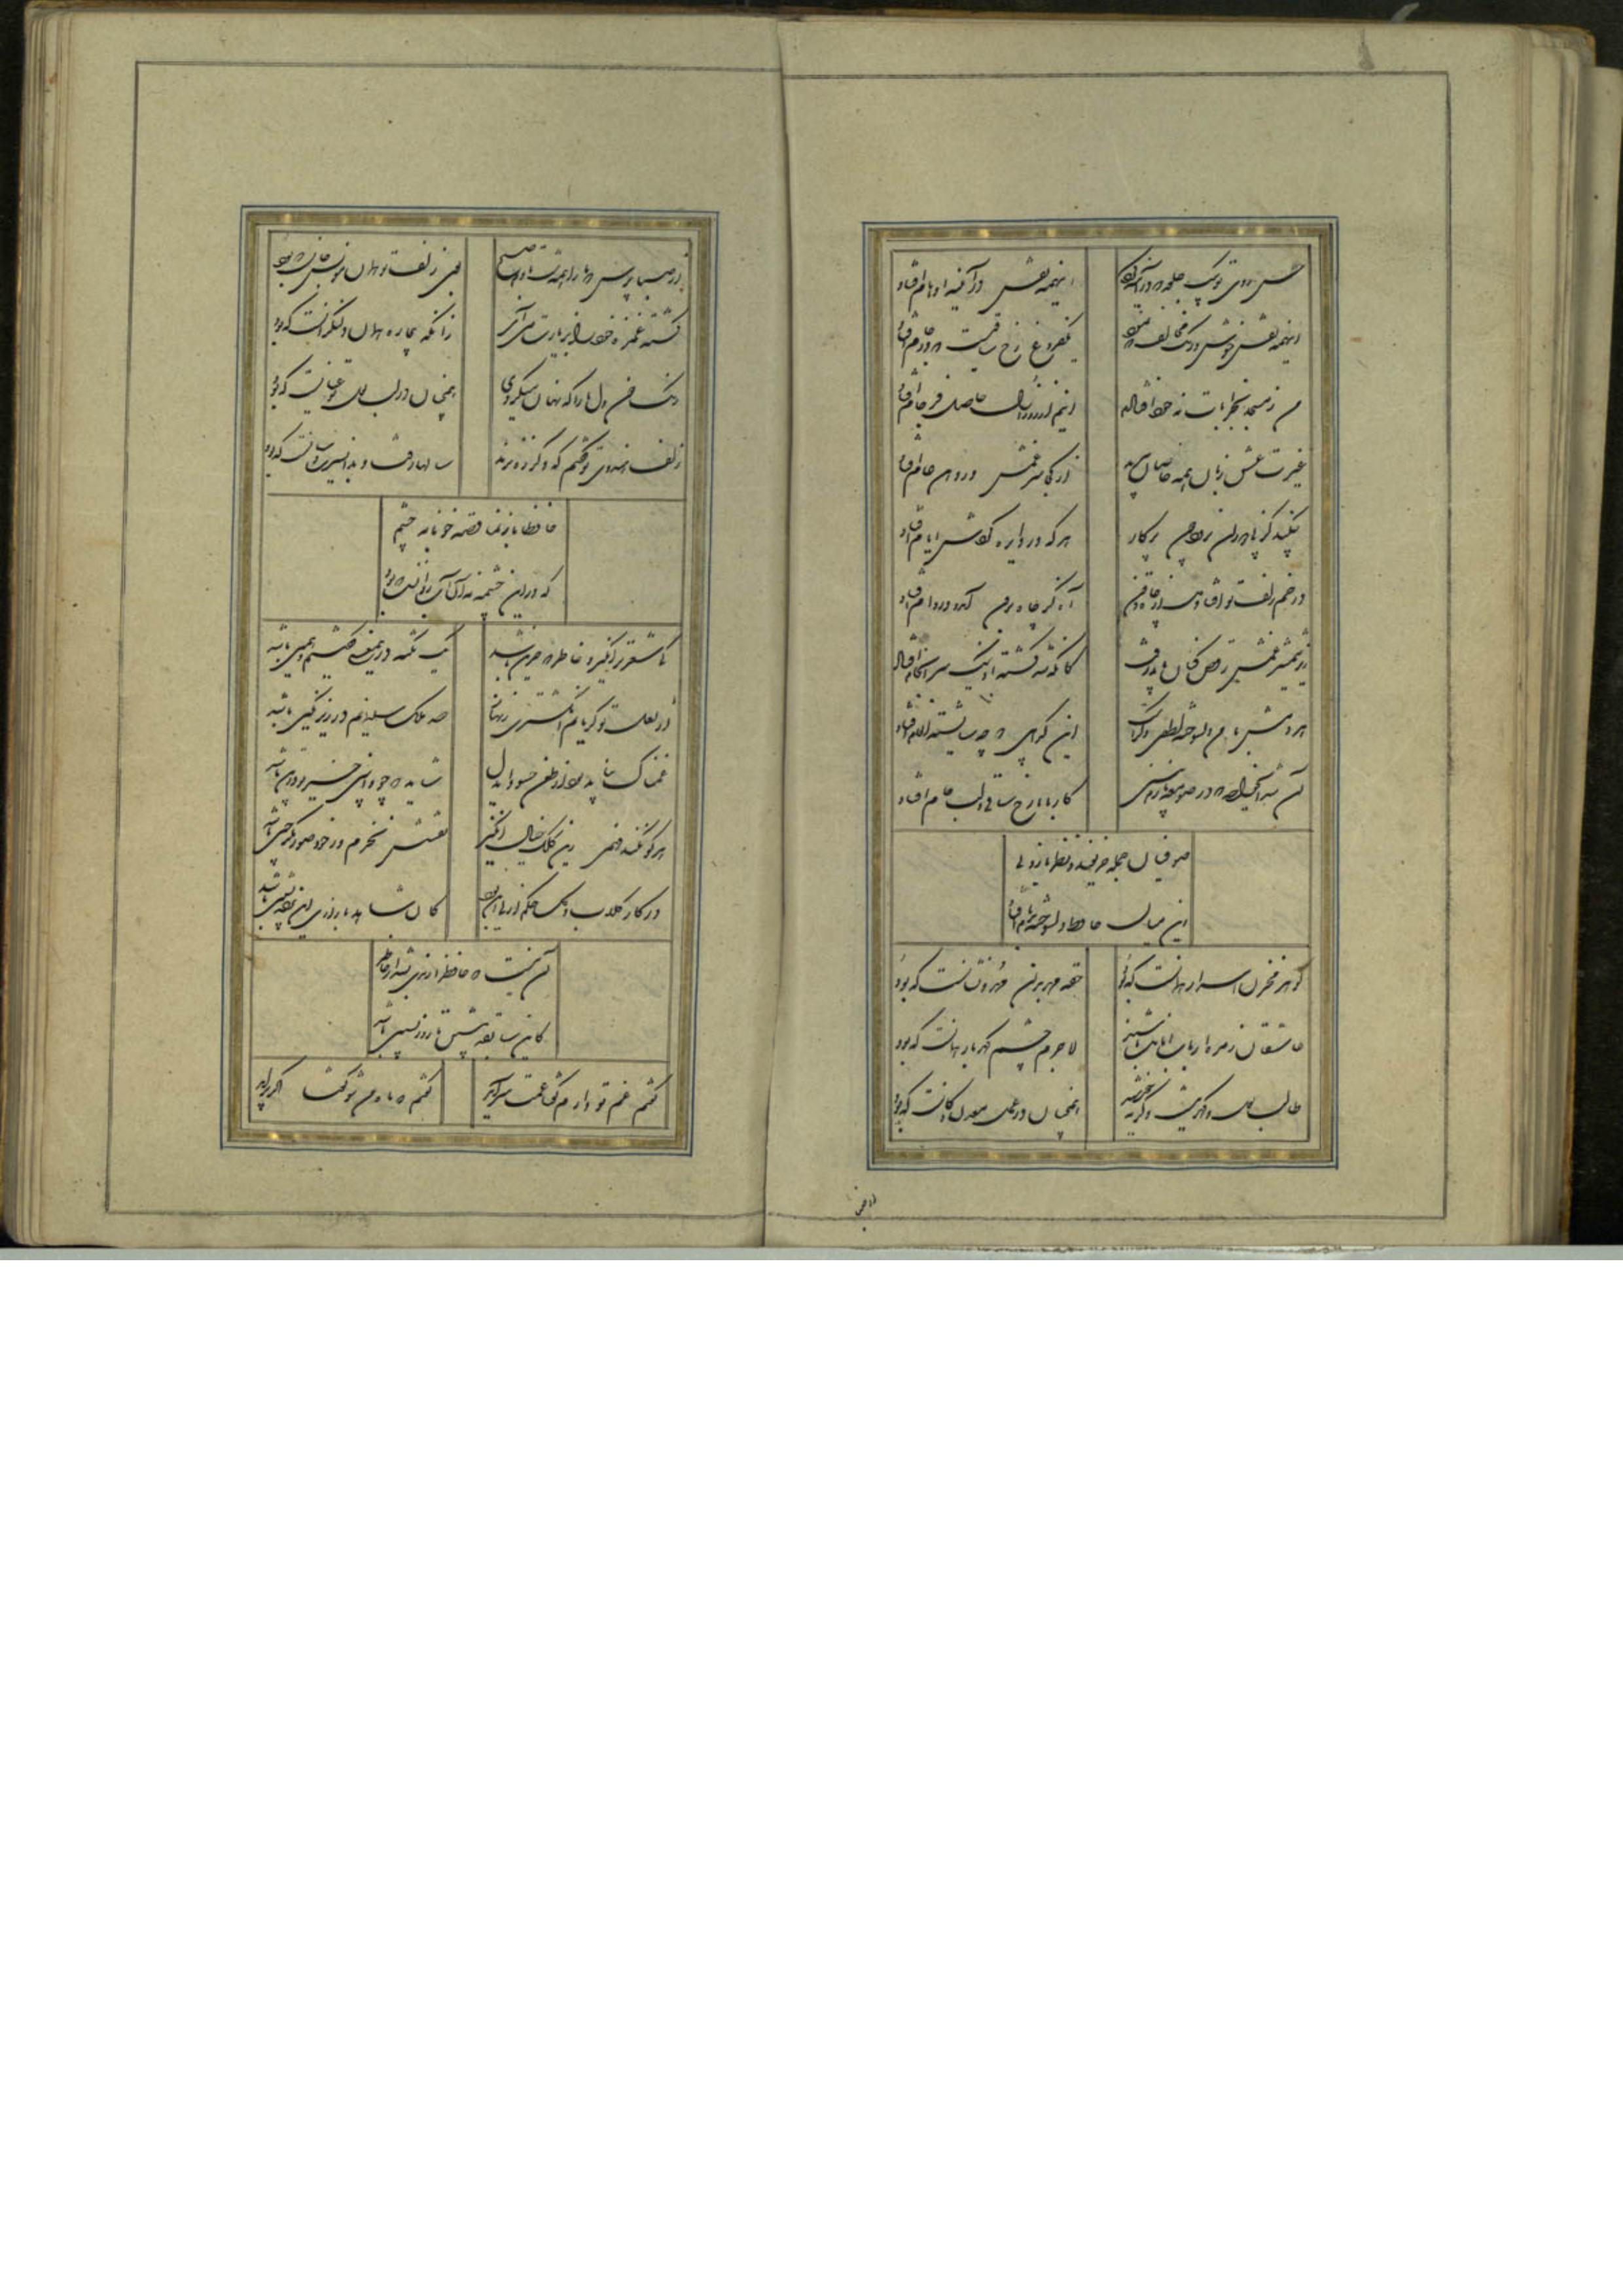 حسن روی تو بیک جلوه که در آینه کرد
اینهمه نقش در آینه اوهام افتاد
اینهمه نقش خوش و رنگ مخالف که نمود
یکفروغ رخ ساقیست که در جام افتاد
من ز مسجد بخرابات نه خود افتادم
اینم از روز ازل حاصل فرجام افتاد
غیرت عشق زبان همه خاصان ببرید
از کجا سر غمش در دهن عام افتاد
چکند کز پی دوران نرود چون پرکار
هر که در دایره گردش ایام افتاد
در خم زلف تو آویخت دل از چاه ذقن
آه کز چاه برون آمد و در دام افتاد
زیر شمشیر غمش رقص کنان باید رفت
کانکه شد کشته او نیک سرانجام افتاد
هر دمش با من دلسوخته لطفی دگرست
این گدا بین که چه شایسته انعام افتاد
آن شد ای خواجه که در صومعه بازم بینی
کار ما با رخ ساقی و لب جام افتاد
صوفیان جمله حریفند و نظرباز ولی
این میان حافظ دلسوخته بدنام افتاد
گوهر مخزن اسرار همانست که بود
حقه مهر بدان مهر و نشانست که بود
عاشقان زمره ارباب امانت باشند
لاجرم چشم گهربار همانست که بود
طالب لعل و گهر نیست وگرنه خورشید
همچنان در عمل معدن و کانست که بود
از صبا پرس که ما را همه شب تا دم صبح
بوی زلف تو همان مونس جانست که بود
کشته غمزه خود را بزیارت می آی
زانکه بیچاره همان دل نگرانست که بود
رنگ خون دل ما را که نهان میکردی
همچنان در لب لعل تو عیانست که بود
زلف هندوی تو گفتم که دگر ره نزند
سالها رفت و بدان سیرت و سانست که بود
حافظا باز نما قصه خونابه چشم
که درین چشمه همان آب روانست که بود
کی شعر تر انگیزد خاطر که حزین باشد
یک نکته درین معنی گفتیم و همین باشد
از لعل تو گر یابم انگشتری زنهار
صد ملک سلیمانم در زیر نگین باشد
غمناک نباید بود از طعن حسود ای دل
شاید که چو وابینی خیر تو درین باشد
هر کو نکند فهمی زین کلک خیال انگیز
نقشش نخرم ور خود صورتگر چین باشد
در کار گلاب و گل حکم ازلی این بود
کان شاهد بازاری وین پرده نشین باشد
آن نیست که حافظ را رندی بشد از خاطر
کاین سابقه پیشین تا روز پسین باشد
گفتم غم تو دارم گفتا غمت سرآید
گفتم که ماه من شو گفتا اگر برآید